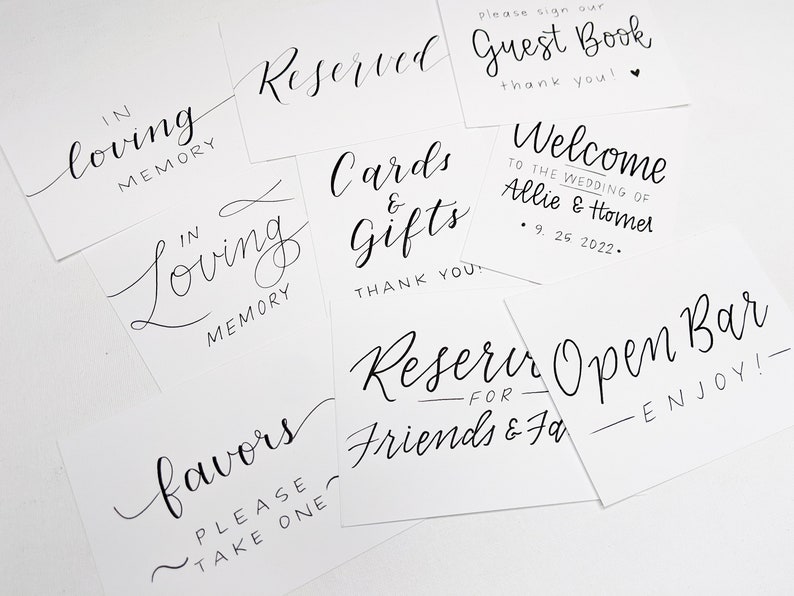 IN
loving
MEMORY
Reserved
please sign our
Guest Book
thank you! ♥
IN
Loving
MEMORY
Cards
&
Gifts
THANK YOU!
Welcome
TO THE WEDDING OF
Allie & Homer
• 9. 25 2022 •
favors
PLEASE
~ TAKE ONE ~
FOR
Friends &
Open Bar
— ENJOY! —